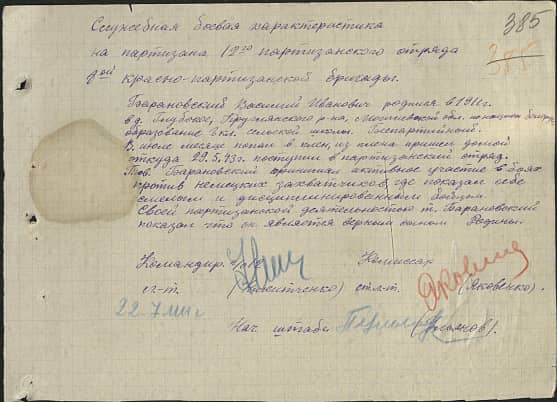 385
Служебная боевая характеристика
на партизана 12го партизанского отряда
8ой красно-партизанской бригады.
Барановский Василий Иванович родился в 1911г
в д. Глубокое, Пружанского р-на,
образование 2 кл. сельской школы. Беспартийный.
В июле месяце попал в плен, из плена пришел домой
откуда 29.5.43г. поступил в партизанский отряд.
Тов. Барановский принимал активное участие в боях
против немецких захватчиков, где показал себя
смелым и дисциплинированным бойцом
Своей партизанской деятельностью т. Барановский
показал что он является верным сыном Родины.
Командир Комиссар
ст.л-т. (Яковенко)
22-7
Нач. штаба